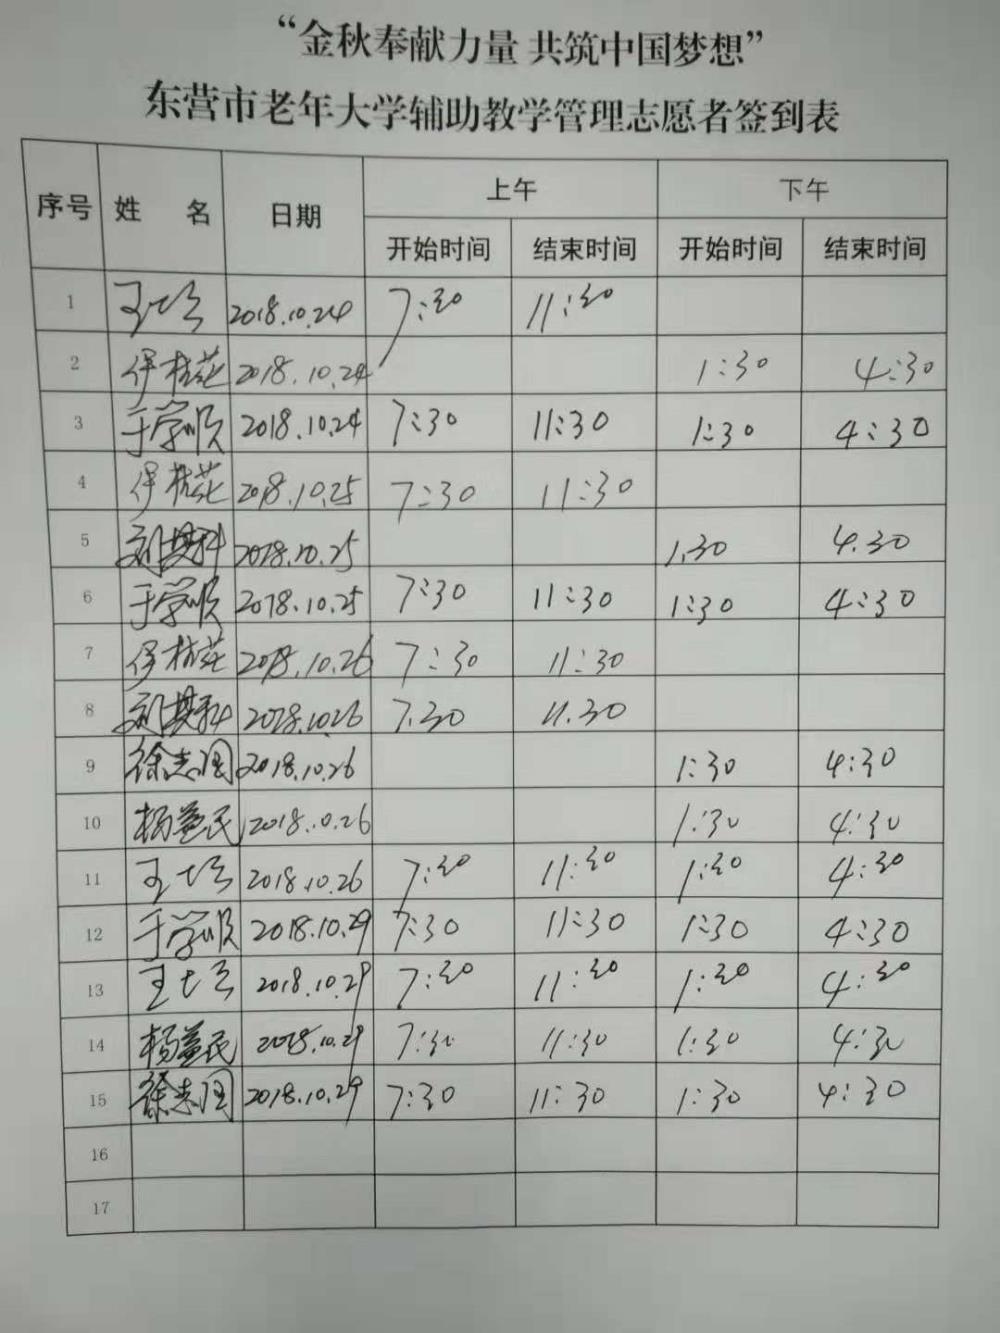 “金秋奉献力量 共筑中国梦想”
东营市老年大学辅助教学管理志愿者签到表
序号 姓 名 日期 上午 下午
开始时间 结束时间 开始时间 结束时间
1 2018.10.24 7:30 11:30
2 伊桂花 2018.10.24 1:30 4:30
3 于学顺 2018.10.24 7:30 11:30 1:30 4:30
4 伊桂花 2018.10.25 7:30 11:30
5 刘其科 2018.10.25 1.30 4.30
6 于学顺 2018.10.25 7:30 11:30 1:30 4:30
7 伊桂花 2018.10.26 7:30 11:30
8 刘其科 2018.10.26 7.30 11.30
9 徐志国 2018.10.26 1:30 4:30
10 杨益民 2018.10.26 1:30 4:30
11 2018.10.26 7:30 11:30 1:30 4:30
12 于学顺 2018.10.29 7:30 11:30 1:30 4:30
13 2018.10.29 7:30 11:30 1:30 4:30
14 杨益民 2018.10.29 7:30 11:30 1:30 4:30
15 徐志国 2018.10.29 7:30 11:30 1:30 4:30
16
17